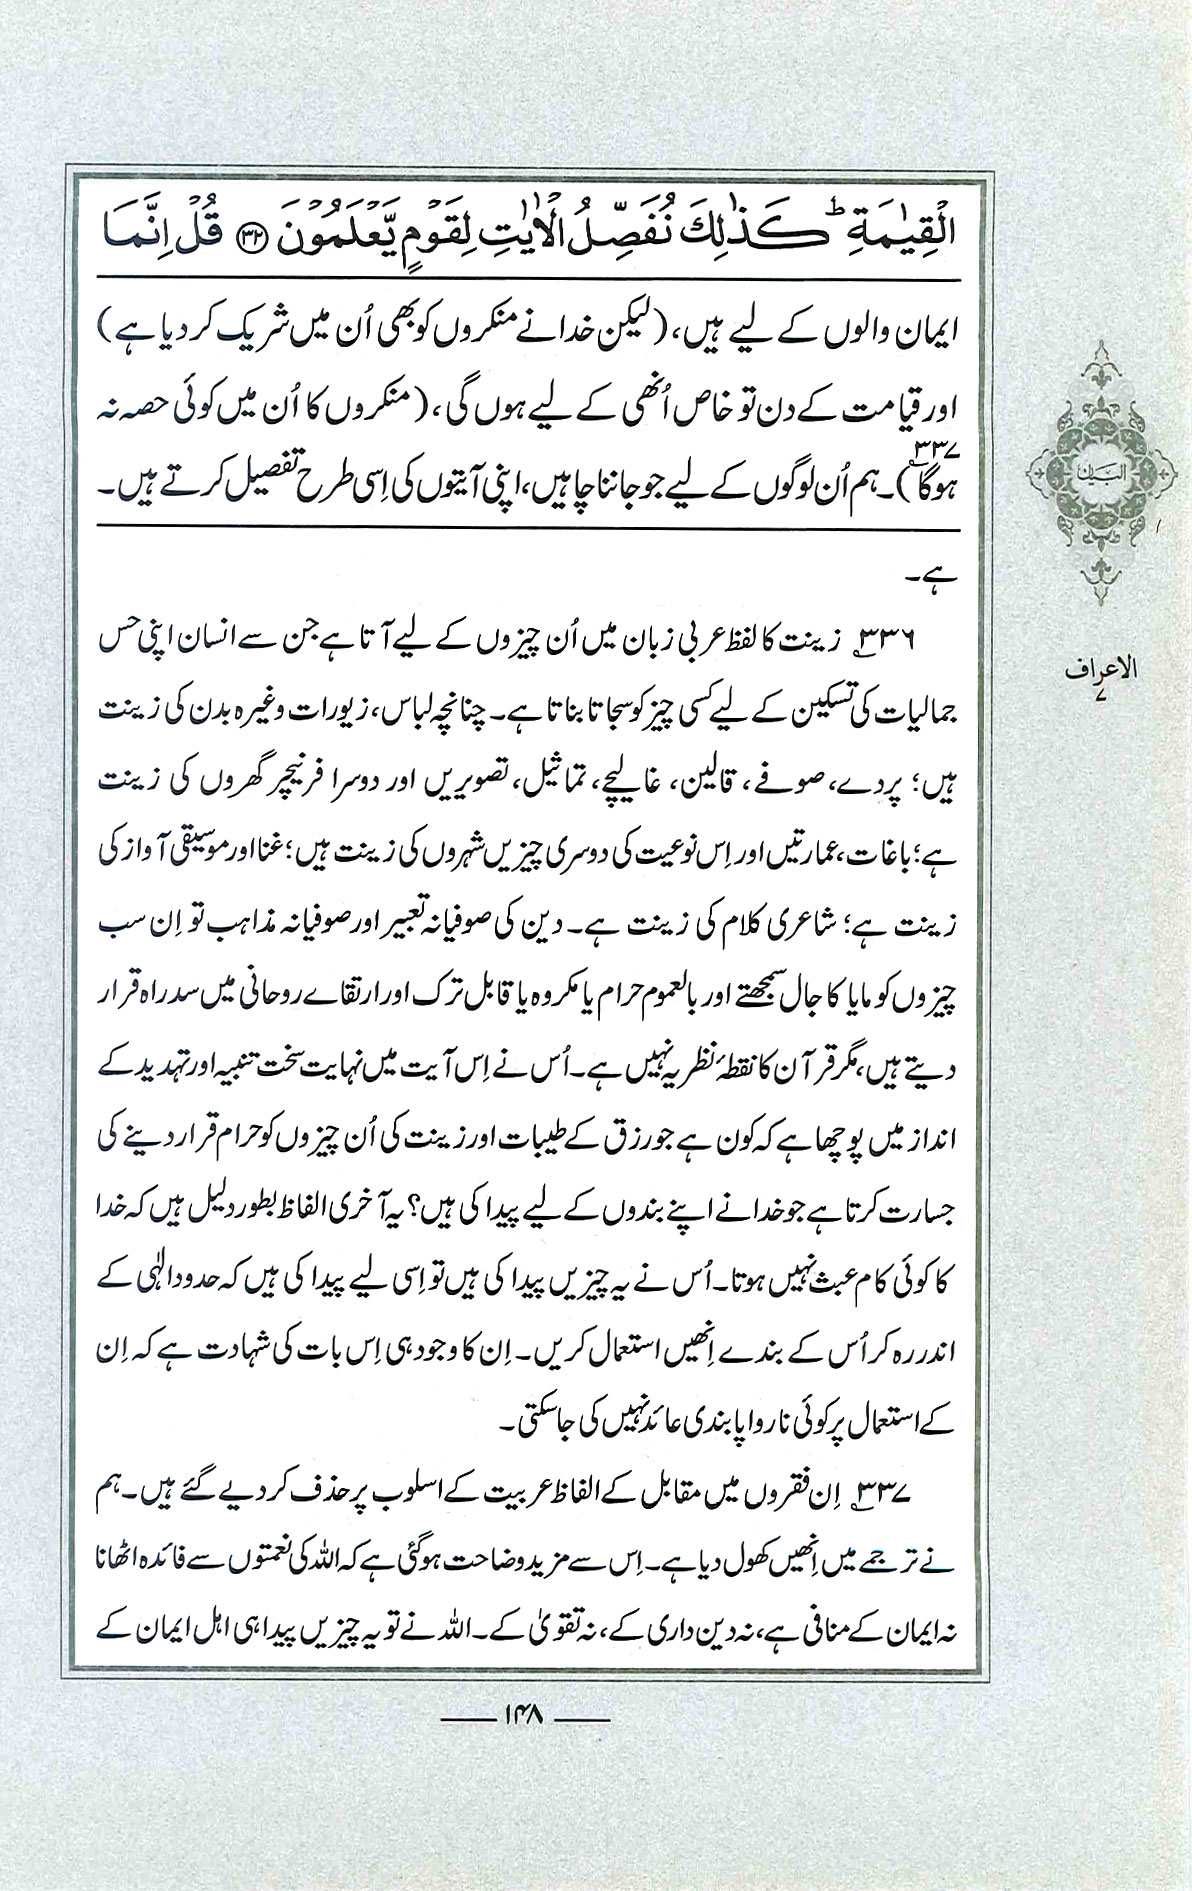 الْقِيٰمَةِ ؕ كَذٰلِكَ نُفَصِّلُ الْاٰيٰتِ لِقَوْمٍ يَّعْلَمُوْنَ ﴿۳۲﴾ قُلْ اِنَّمَا
ایمان والوں کے لیے ہیں، (لیکن خدا نے منکروں کو بھی اُن میں شریک کر دیا ہے)
اور قیامت کے دن تو خاص اُنھی کے لیے ہوں گی، (منکروں کا اُن میں کوئی حصہ نہ
ہوگا)۳۳۷۔ ہم اُن لوگوں کے لیے جو جاننا چاہیں، اپنی آیتوں کی اِسی طرح تفصیل کرتے ہیں۔
ہے۔
۳۳۶؎ زینت کا لفظ عربی زبان میں اُن چیزوں کے لیے آتا ہے جن سے انسان اپنی حس
جمالیات کی تسکین کے لیے کسی چیز کو سجاتا بناتا ہے۔ چنانچہ لباس، زیورات وغیرہ بدن کی زینت
ہیں؛ پردے، صوفے، قالین، غالیچے، تماثیل، تصویریں اور دوسرا فرنیچر گھروں کی زینت
ہے؛ باغات، عمارتیں اور اِس نوعیت کی دوسری چیزیں شہروں کی زینت ہیں؛ غنا اور موسیقی آواز کی
زینت ہے؛ شاعری کلام کی زینت ہے۔ دین کی صوفیانہ تعبیر اور صوفیانہ مذاہب تو اِن سب
چیزوں کو مایا کا جال سمجھتے اور بالعموم حرام یا مکروہ یا قابل ترک اور ارتقاے روحانی میں سد راہ قرار
دیتے ہیں، مگر قرآن کا نقطۂ نظر یہ نہیں ہے۔ اُس نے اِس آیت میں نہایت سخت تنبیہ اور تہدید کے
انداز میں پوچھا ہے کہ کون ہے جو رزق کے طیبات اور زینت کی اُن چیزوں کو حرام قرار دینے کی
جسارت کرتا ہے جو خدا نے اپنے بندوں کے لیے پیدا کی ہیں؟ یہ آخری الفاظ بطور دلیل ہیں کہ خدا
کا کوئی کام عبث نہیں ہوتا۔ اُس نے یہ چیزیں پیدا کی ہیں تو اِسی لیے پیدا کی ہیں کہ حدود الٰہی کے
اندر رہ کر اُس کے بندے اِنھیں استعمال کریں۔ اِن کا وجود ہی اِس بات کی شہادت ہے کہ اِن
کے استعمال پر کوئی ناروا پابندی عائد نہیں کی جا سکتی۔
۳۳۷؎ اِن فقروں میں مقابل کے الفاظ عربیت کے اسلوب پر حذف کر دیے گئے ہیں۔ ہم
نے ترجمے میں اِنھیں کھول دیا ہے۔ اِس سے مزید وضاحت ہوگئی ہے کہ اللہ کی نعمتوں سے فائدہ اٹھانا
نہ ایمان کے منافی ہے، نہ دین داری کے، نہ تقویٰ کے۔ اللہ نے تو یہ چیزیں پیدا ہی اہل ایمان کے
البیان
الاعراف
۷
۱۴۸